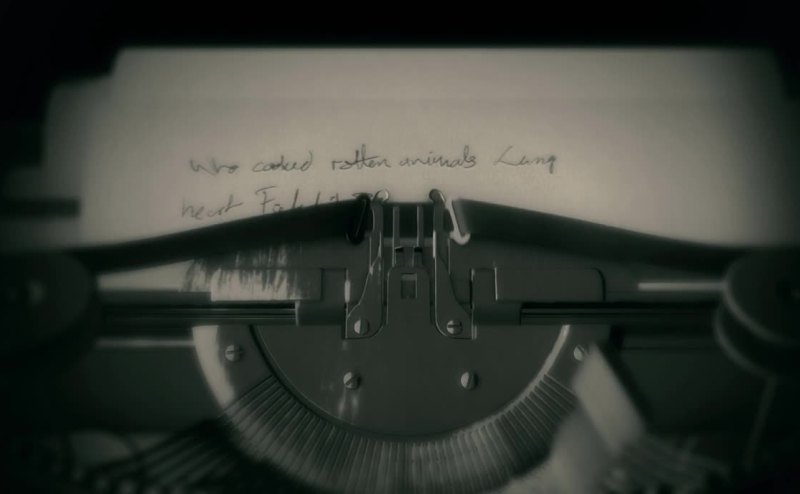 Who cooked rotten animals Lung
heart